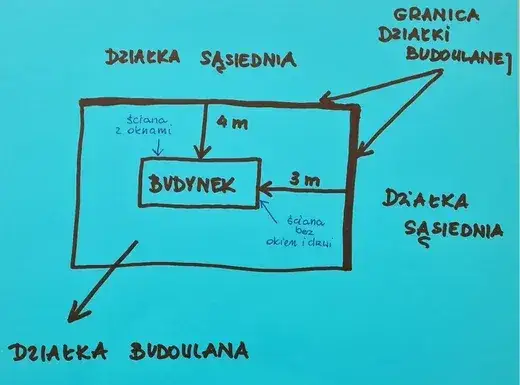 GRANICA
DZIAŁKI
BUDOULANEJ
DZIAŁKA SĄSIEDNIA
ściana
z oknami
4 m
BUDYNEK
3 m
ściana
bez
okien i drzwi
DZIAŁKA
SĄSIEDNIA
DZIAŁKA BUDOULANA